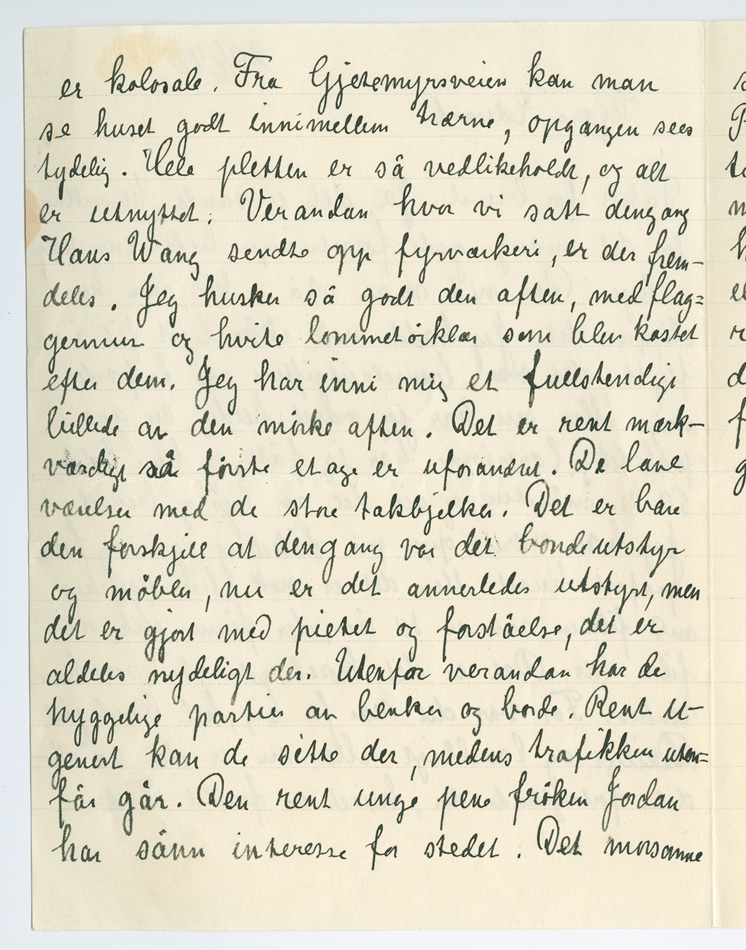 er kolosale. Fra Gjetemyrsveien kan man
se huset godt innimellem trærne, opgangen sees
tydelig. Hele pletten er så vedlikeholdt, og alt
er utnyttet. Verandan hvor vi satt dengang
Hans Wang sendte opp fyrværkeri, er der frem-
deles. Jeg husker så godt den aften, med flag=
germus og hvite lommetörklær som blev kastet
efter dem. Jeg har inni mig et fullstendigt
billede av den mörke aften. Det er rent mærk-
værdigt så förste etage er uforandret. De lave
værelser med de store takbjelker. Det er bare
den forskjell at dengang var det bondeutstyr
og möbler, nu er det annerledes utstyrt, men
det er gjort med pietet og forståelse, det er
aldeles nydeligt der. Utenfor verandan har de
hyggelige partier av benker og borde. Rent u-
genert kan de sitte der, medens trafikken uten=
før går. Den rent unge pene fröken Jordan
har sånn interesse for stedet. Det morsomme